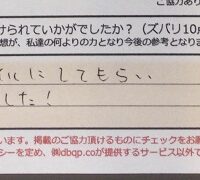 ご協力あり
けられていかがでしたか？（ズバリ10点
想が、私達の何よりの力となり今後の参考となりま
ルにしてもらい
した！
います。掲載のご協力頂けるものにチェックをお願
シーを定め、㈱dbqp.coが提供するサービス以外で